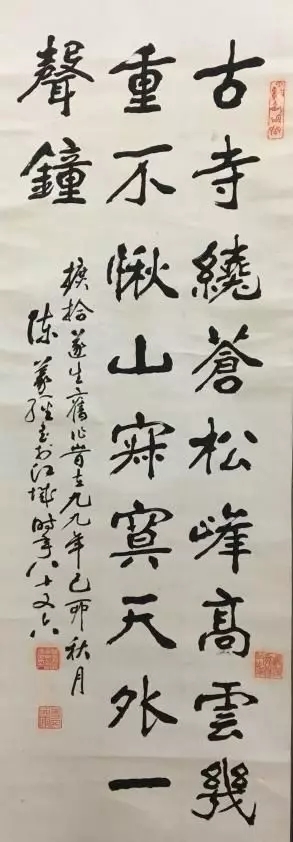 古寺繞蒼松峰高雲幾
重不愀山寂寞天外一
聲鐘
摭拾遂生舊作旹在九九年己卯秋月
陳義經書於江城時年八十又六